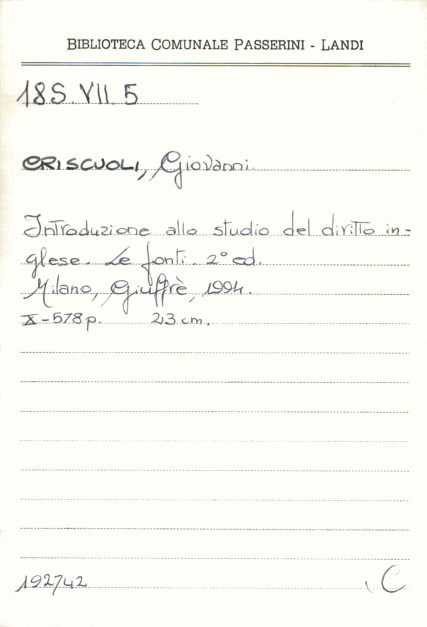 BIBLIOTECA COMUNALE PASSERINI - LANDI
18S. VII. 5
CRISCUOLI, Giovanni.
Introduzione allo studio del diritto in-
glese. Le fonti. 2° ed.
Milano, Giuffrè, 1994.
X-578 p. 23 cm.
192742
C